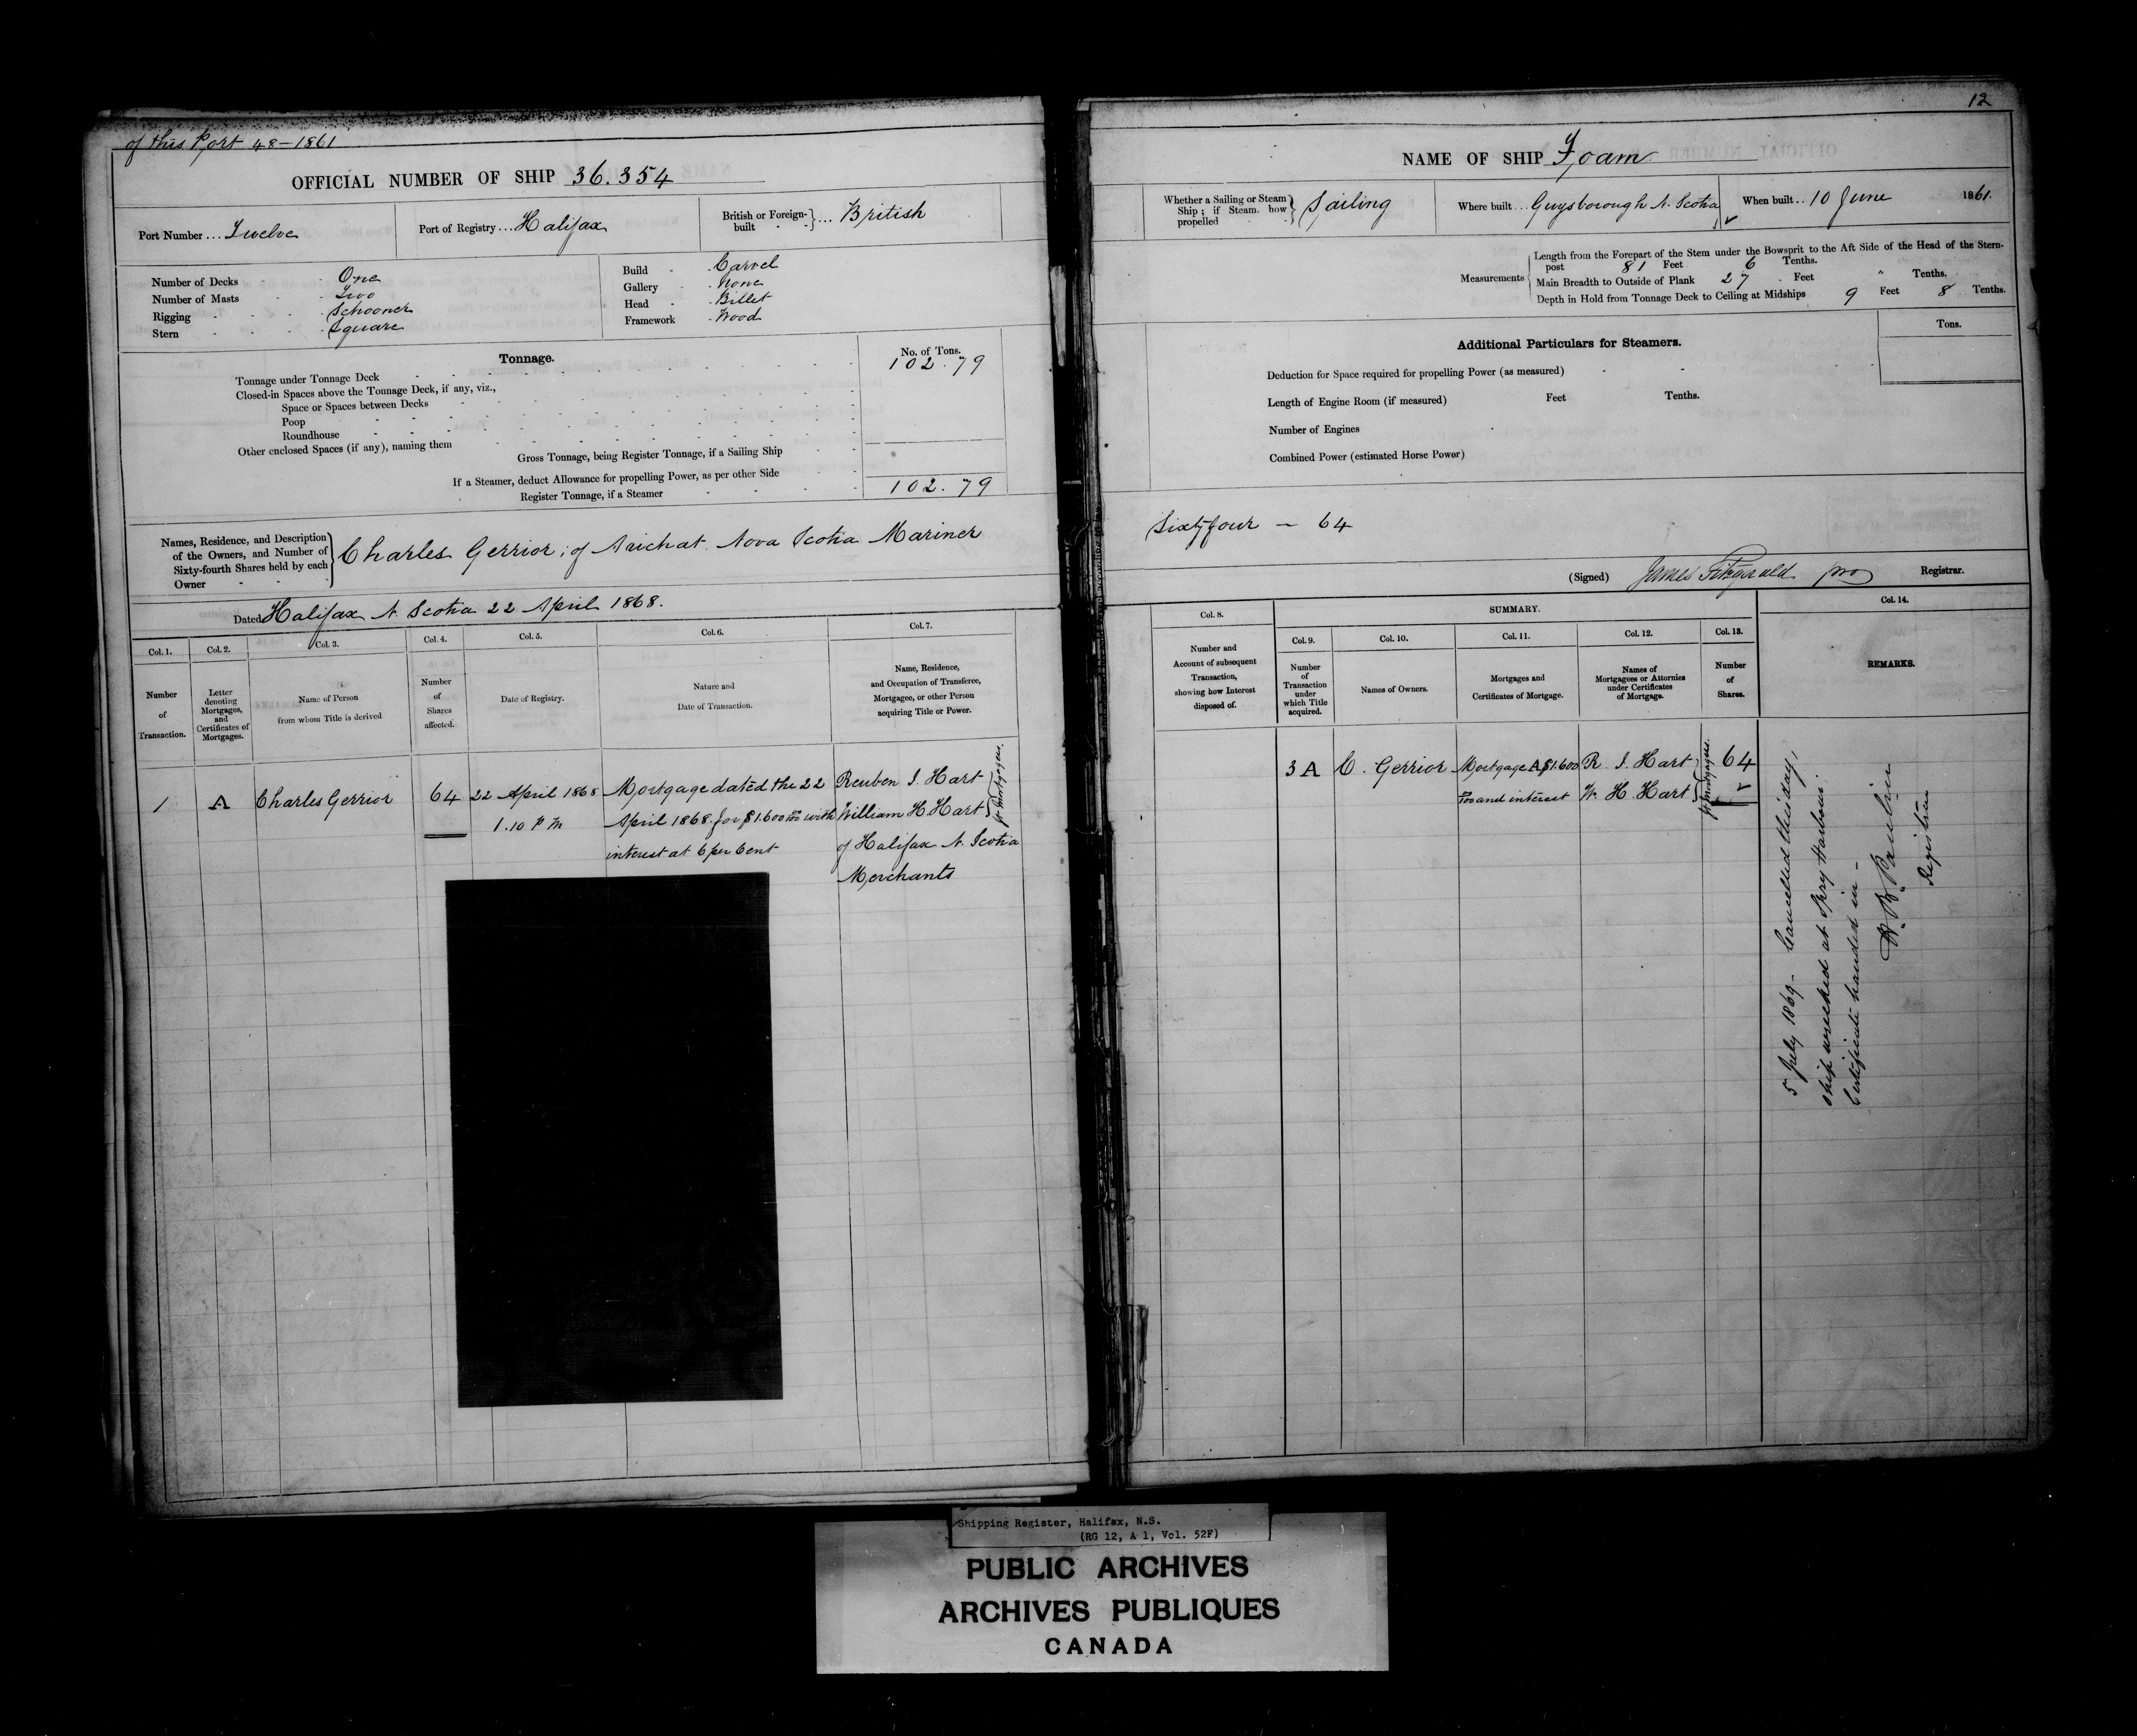 of this Port 48-1861
OFFICIAL NUMBER OF SHIP 36.354
Port Number ... Twelve
Port of Registry ... Halifax
British or Foreign-built ... British
Number of Decks One
Number of Masts Two
Rigging Schooner
Stern Square
Build Carvel
Gallery None
Head Billet
Framework Wood
Tonnage.
No. of Tons.
Tonnage under Tonnage Deck 102.79
Closed-in Spaces above the Tonnage Deck, if any, viz.,
Space or Spaces between Decks
Poop
Roundhouse
Other enclosed Spaces (if any), naming them
Gross Tonnage, being Register Tonnage, if a Sailing Ship
If a Steamer, deduct Allowance for propelling Power, as per other Side
Register Tonnage, if a Steamer 102.79
Names, Residence, and Description
of the Owners, and Number of
Sixty-fourth Shares held by each
Owner
Charles Gerrior, of Arichat Nova Scotia Mariner
Dated Halifax N. Scotia 22 April 1868.
Col. 1. Col. 2. Col. 3. Col. 4. Col. 5. Col. 6. Col. 7.
Number of Transaction.
Letter denoting Mortgages, and Certificates of Mortgages.
Name of Person from whom Title is derived
Number of Shares affected.
Date of Registry.
Nature and Date of Transaction.
Name, Residence, and Occupation of Transferee, Mortgagee, or other Person acquiring Title or Power.
1 A Charles Gerrior 64
22 April 1868
1.10 P M
Mortgage dated the 22
April 1868 for $1.600 00 with
interest at 6 per Cent
Reuben I. Hart
William H. Hart
of Halifax N. Scotia
Merchants
Jt Mortgagees.
12
NAME OF SHIP Foam
Whether a Sailing or Steam
Ship; if Steam. how
propelled
Sailing
Where built ... Guysborough N. Scotia
When built .. 10 June 1861.
Measurements
Length from the Forepart of the Stem under the Bowsprit to the Aft Side of the Head of the Stern-
post 81 Feet 6 Tenths.
Main Breadth to Outside of Plank 27 Feet " Tenths.
Depth in Hold from Tonnage Deck to Ceiling at Midships 9 Feet 8 Tenths.
Additional Particulars for Steamers.
Tons.
Deduction for Space required for propelling Power (as measured)
Length of Engine Room (if measured) Feet Tenths.
Number of Engines
Combined Power (estimated Horse Power)
Sixty four - 64
(Signed) James Fitzgerald pro Registrar.
Col. 8.
SUMMARY.
Col. 14.
Col. 9. Col. 10. Col. 11. Col. 12. Col. 13.
Number and Account of subsequent Transaction, showing how Interest disposed of.
Number of Transaction under which Title acquired.
Names of Owners.
Mortgages and Certificates of Mortgage.
Names of Mortgagees or Attornies under Certificates of Mortgage.
Number of Shares.
REMARKS.
3 A C. Gerrior
Mortgage A $1.600
00 and interest
R. I. Hart
W. H. Hart
Jt Mortgagees.
64
5 July 1869- Cancelled this day,
ship wrecked at Spry Harbour.
Certificate handed in -
Registrar
Shipping Register, Halifax, N.S.
(RG 12, A 1, Vol. 52F)
PUBLIC ARCHIVES
ARCHIVES PUBLIQUES
CANADA